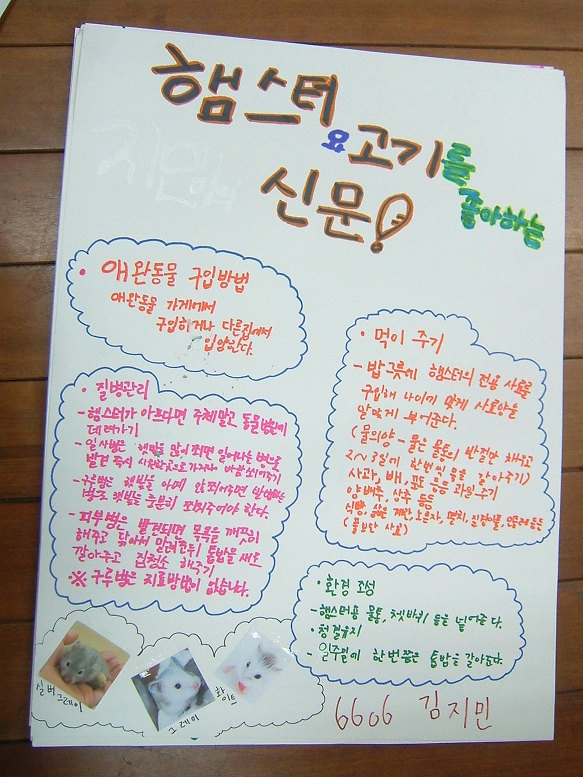 햄스터
요 고기를
좋아하는
신문!
• 애완동물 구입방법
애완동물 가게에서
구입하거나 다른집에서
입양한다.
• 질병관리
- 햄스터가 아프다면 주저말고 동물병원에
데려가기
- 일사병은 햇빛을 많이 쬐면 일어나는 병으로
발견 즉시 시원한곳으로 가거나 바람쐬어주기
- 구루병은 햇빛을 아예 안쬐어주면 발생하는
병으로 햇빛을 충분히 쪼여주어야 한다.
- 피부병은 발견되면 목욕을 깨끗이
해주고 닦아서 말려준뒤 톱밥을 새로
깔아주고 집청소 해주기
※ 구루병은 치료방법이 없습니다.
• 먹이 주기
- 밥그릇에 햄스터의 전용 사료를
구입해 나이에 맞게 사료양을
알맞게 부어준다.
(물의양 - 물은 물통의 반절만 채우고
2~3일에 한번씩 물을 갈아주기)
사과, 배, 포도 등등 과일주기
양배추, 상추 등등
식빵, 삶은 계란, 도토리, 멸치, 민들레 등등
(불량한 사료)
• 환경 조성
- 햄스터용 물통, 쳇바퀴 등을 넣어준다.
• 청결유지
- 일주일에 한번쯤은 톱밥을 갈아준다.
실버그레이
그레이
화이트
6606 김지민